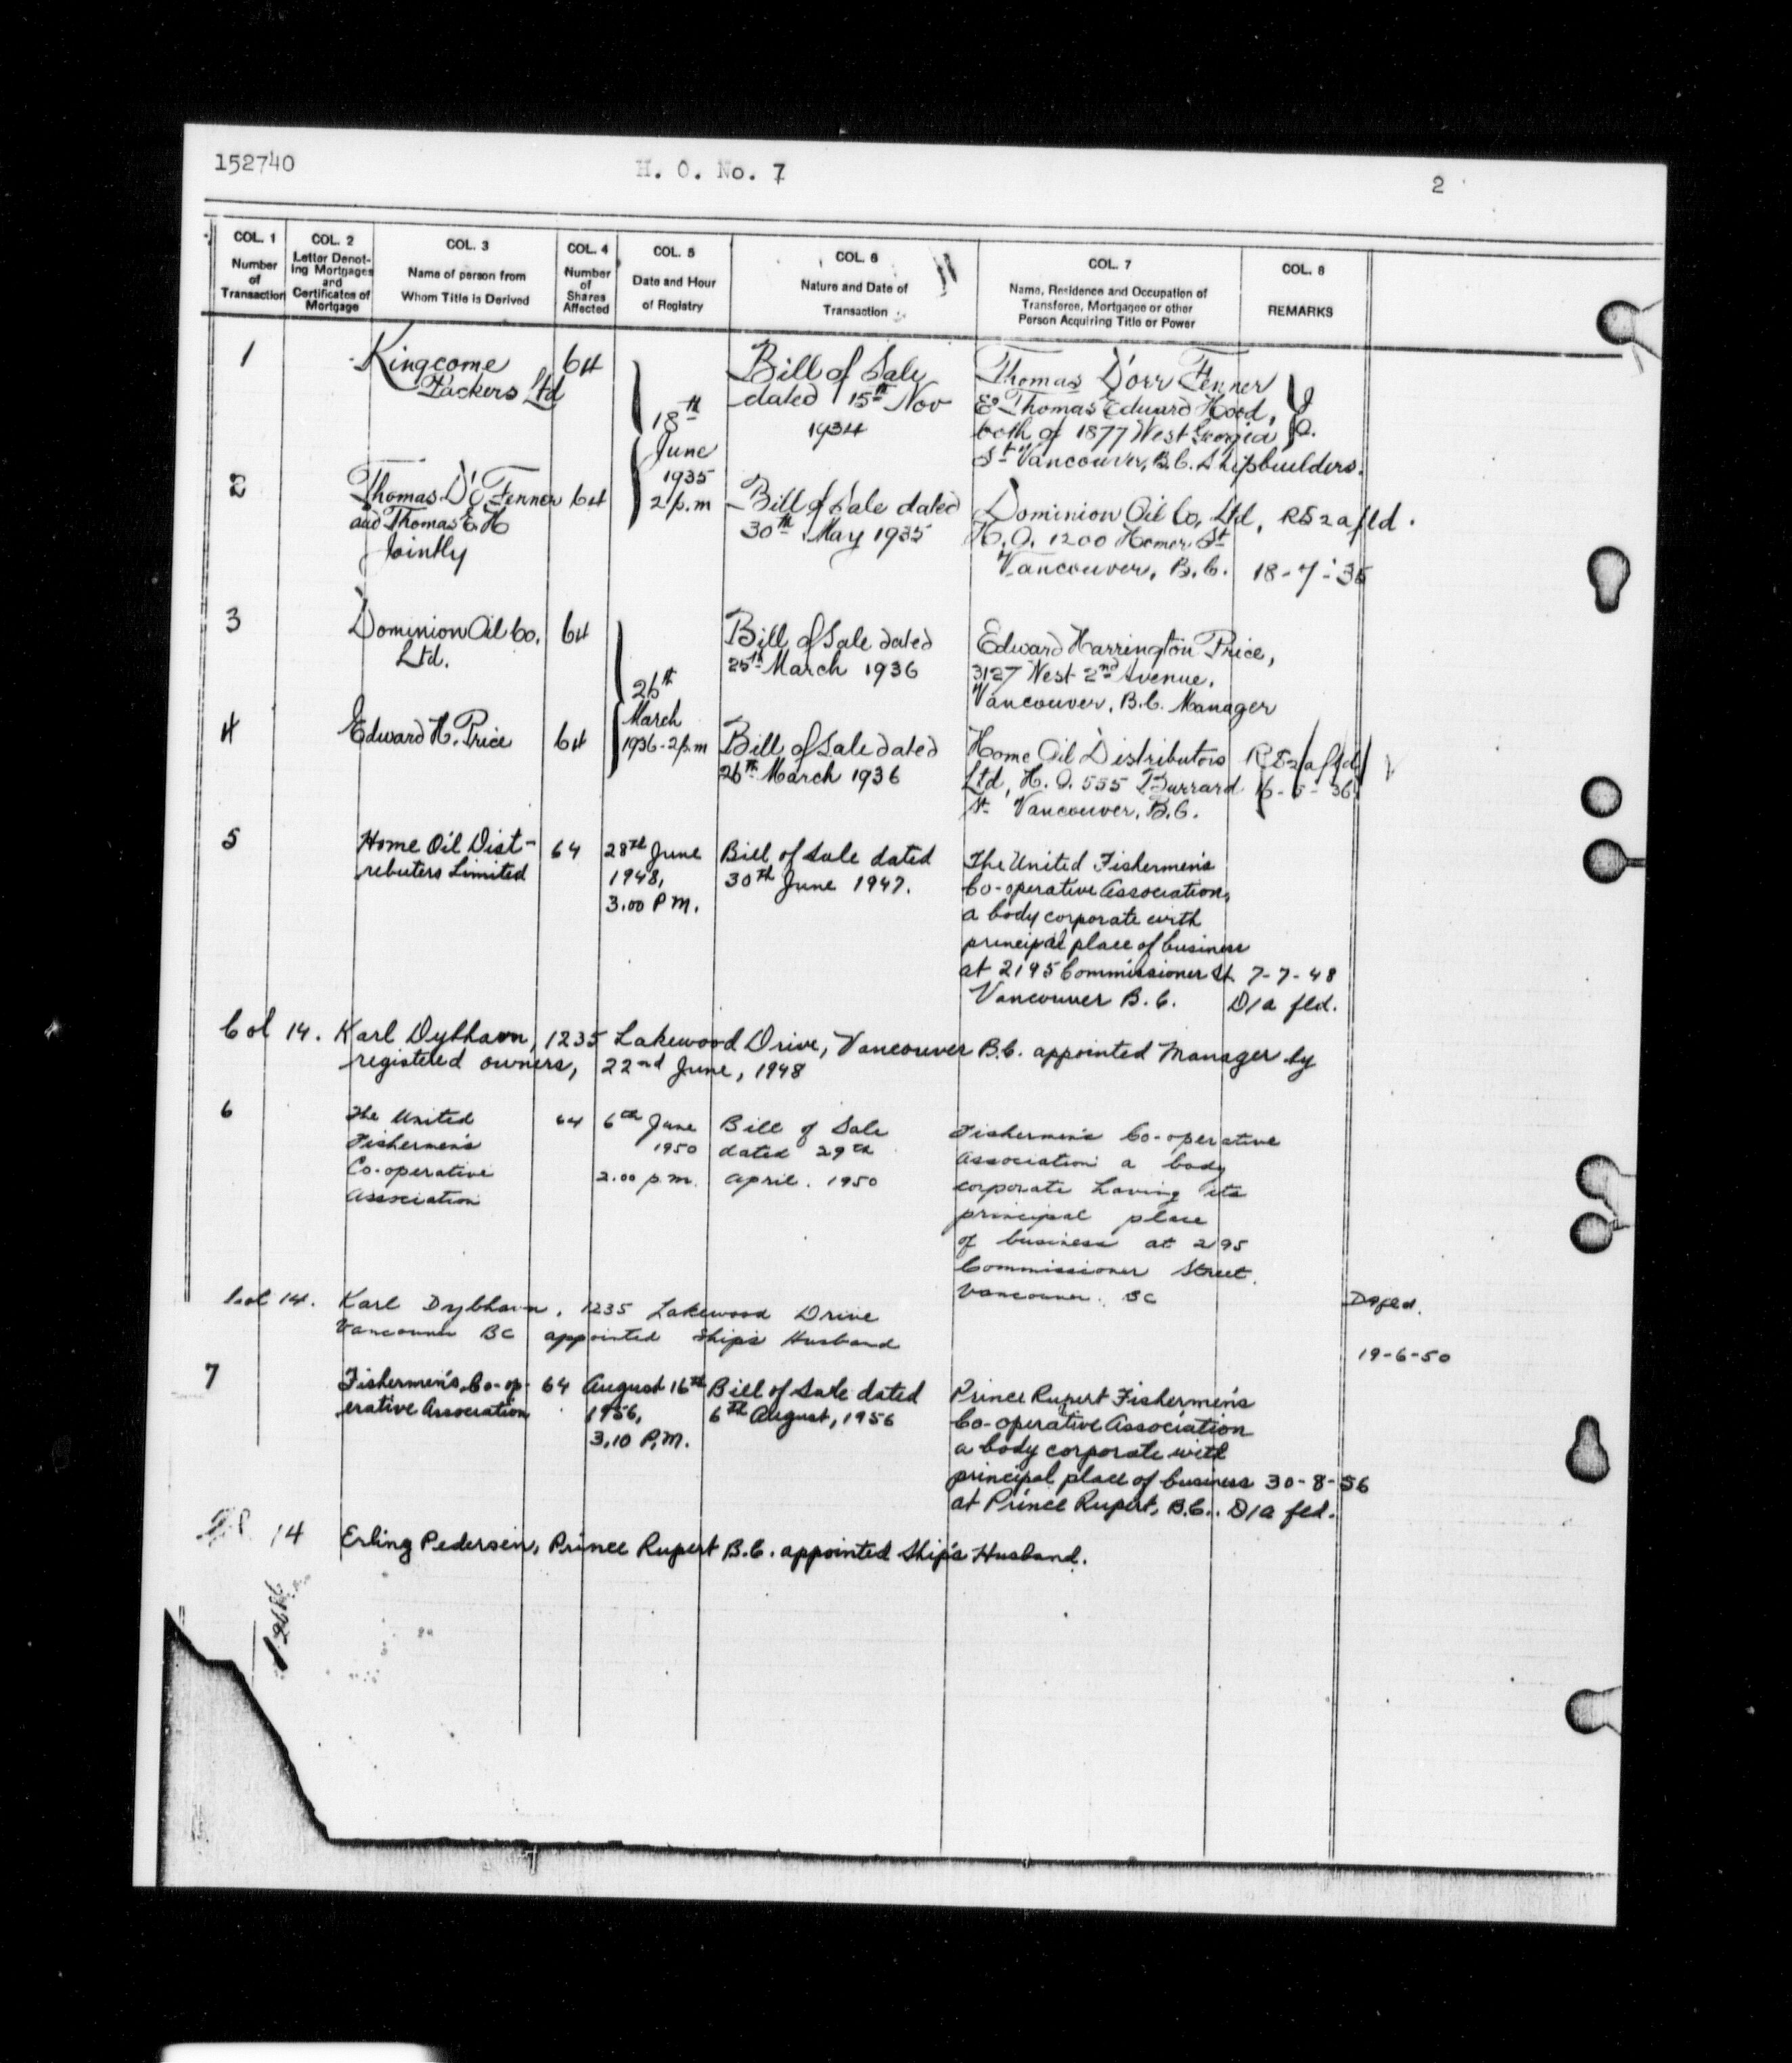 152740 H. O. No. 7 2
COL. 1 Number of Transaction
COL. 2 Letter Denoting Mortgages and Certificates of Mortgage
COL. 3 Name of person from Whom Title is Derived
COL. 4 Number of Shares Affected
COL. 5 Date and Hour of Registry
COL. 6 Nature and Date of Transaction
COL. 7 Name, Residence and Occupation of Transferee, Mortgagee or other Person Acquiring Title or Power
COL. 8 REMARKS
1
Kingcome
Packers Ltd
64
18th
June
1935
2 p.m
Bill of Sale
dated 15th Nov
1934
Thomas Dorr Fenner
& Thomas Edward Hood,
both of 1877 West Georgia
St Vancouver, B.C. Shipbuilders.
J
O.
2
Thomas D. Fenner
and Thomas E. H
Jointly
64
Bill of Sale dated
30th May 1935
Dominion Oil Co, Ltd,
H.O. 1200 Homer St
Vancouver, B.C.
RS2a fld.
18-7-35
3
Dominion Oil Co.
Ltd.
64
26th
March
1936-2 p.m
Bill of Sale dated
25th March 1936
Edward Harrington Price,
3127 West 2nd Avenue.
Vancouver, B.C. Manager
4
Edward H. Price
64
Bill of Sale dated
26th March 1936
Home Oil Distributors
Ltd, H.O. 555 Burrard
St Vancouver, B.C.
RS2a fld
16-5-36
5
Home Oil Dist-
rebuters Limited
64
28th June
1948,
3.00 P.M.
Bill of Sale dated
30th June 1947.
The United Fishermen's
Co-operative Association,
a body corporate with
principal place of business
at 2195 Commissioner St
Vancouver B.C.
7-7-48
D/a fld.
Col 14. Karl Dybhavn, 1235 Lakewood Drive, Vancouver B.C. appointed Manager by
registered owners, 22nd June, 1948
6
The United
Fishermen's
Co-operative
Association
64
6th June
1950
2.00 p.m.
Bill of Sale
dated 29th
April. 1950
Fishermen's Co-operative
Association a body
corporate having its
principal place
of business at 2195
Commissioner Street.
Vancouver. BC
Col 14. Karl Dybhavn, 1235 Lakewood Drive
Vancouver BC appointed Ship's Husband
19-6-50
7
Fishermen's Co-op-
erative Association
64
August 16th
1956,
3.10 P.M.
Bill of Sale dated
6th August, 1956
Prince Rupert Fishermen's
Co-operative Association
a body corporate with
principal place of business
at Prince Rupert, B.C.
30-8-56
D/a fld.
14 Erling Pedersen, Prince Rupert B.C. appointed Ship's Husband.